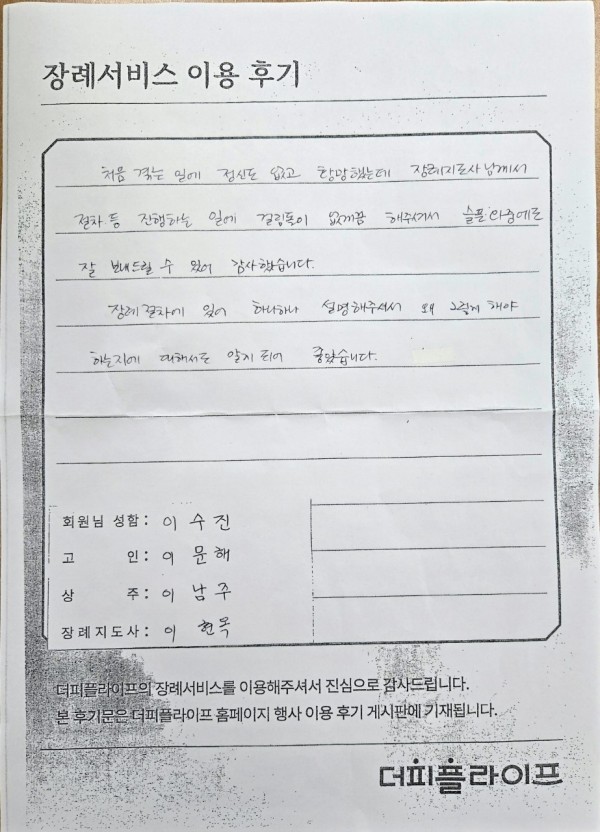 장례서비스 이용 후기
처음 겪는 일에 정신도 없고 황망했는데 장례지도사님께서
절차 등 진행하는 일에 걸림돌이 없게끔 해주셔서 슬픔 와중에도
잘 보내드릴 수 있어 감사했습니다.
장례 절차에 있어 하나하나 설명해주셔서 왜 그렇게 해야
하는지에 대해서도 알게 되어 좋았습니다.
회원님 성함 : 이수진
고 인 : 이문해
상 주 : 이남주
장례지도사 : 이현옥
더피플라이프의 장례서비스를 이용해주셔서 진심으로 감사드립니다.
본 후기문은 더피플라이프 홈페이지 행사 이용 후기 게시판에 기재됩니다.
더피플라이프